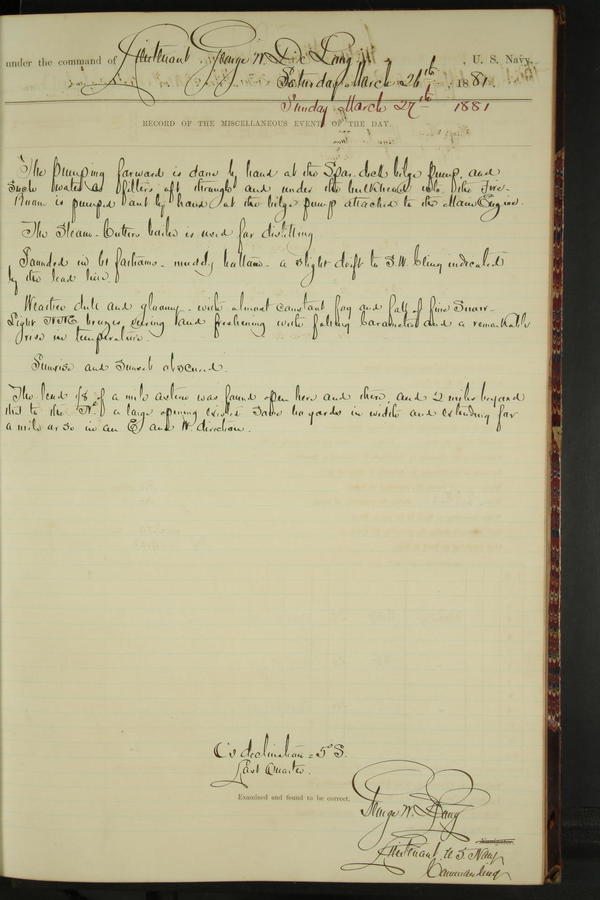 under the command of Lieutenant George W. De Long, U. S. Navy,
Saturday March 26th, 1881.
Sunday March 27th 1881
RECORD OF THE MISCELLANEOUS EVENTS OF THE DAY.
The pumping forward is done by hand at the Spar deck bilge pump, and
such water as filters aft through and under the bulkhead into the Fire-
Room is pumped out by hand at the bilge pump attached to the Main Engine.
The Steam-Cutters boiler is used for distilling
Sounded in 61 fathoms - muddy bottom - a slight drift to S.W. being indicated
by the lead line.
Weather dull and gloomy - with almost constant fog and fall of fine Snow -
Light NNE breezes, veering and freshening with falling barometer and a remarkable
rise in temperature.
Sunrise and Sunset obscured.
The lead 1/8 of a mile astern was found open here and there, and 2 miles beyond
that to the Nd a large opening existed some 40 yards in width and extending for
a mile or so in an E and W. direction.
C's declination = 5° S.
Last Quarter.
Examined and found to be correct.
George W. De Long
Navigator.
Lieutenant U. S. Navy
Commanding